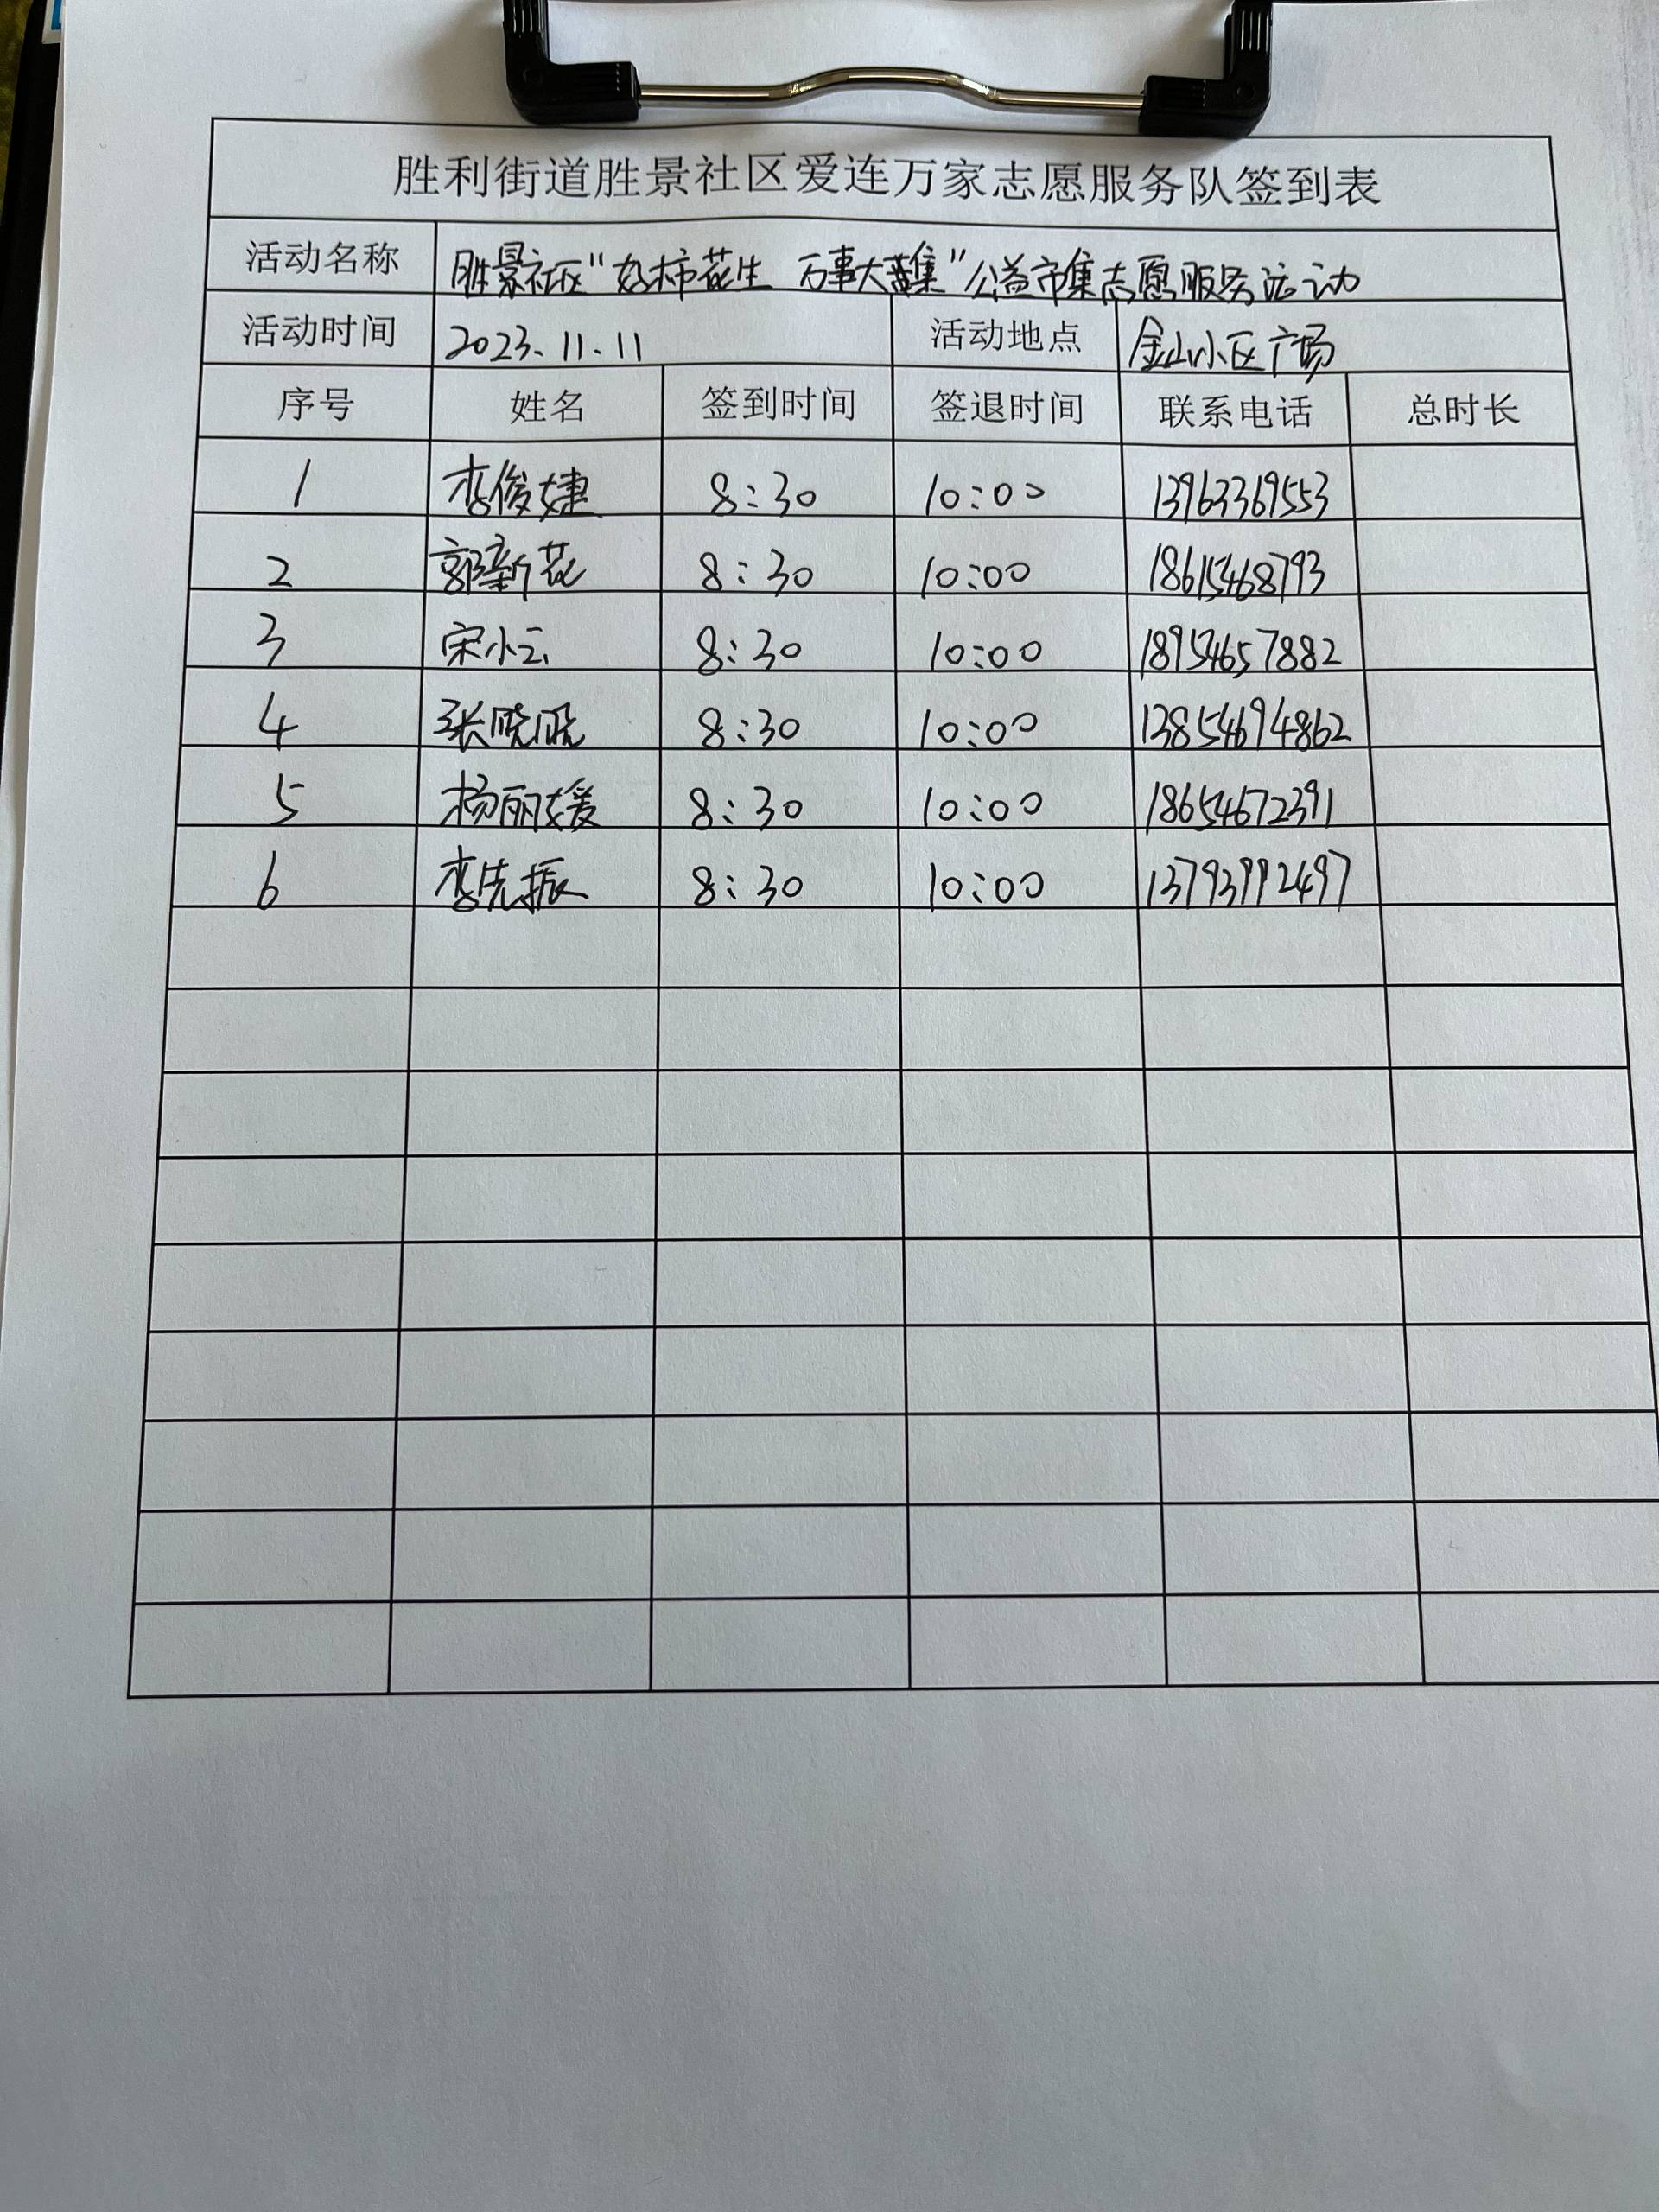 胜利街道胜景社区爱连万家志愿服务队签到表
活动名称 胜景社区“好柿花生 万事大集”公益市集志愿服务活动
活动时间 2023.11.11 活动地点 金山小区广场
序号 姓名 签到时间 签退时间 联系电话 总时长
1 李俊婕 8:30 10:00 13963369553
2 郭新花 8:30 10:00 18615468793
3 宋小云 8:30 10:00 18954657882
4 张晓晓 8:30 10:00 13854694862
5 杨丽媛 8:30 10:00 18654672391
6 李先振 8:30 10:00 13793992497